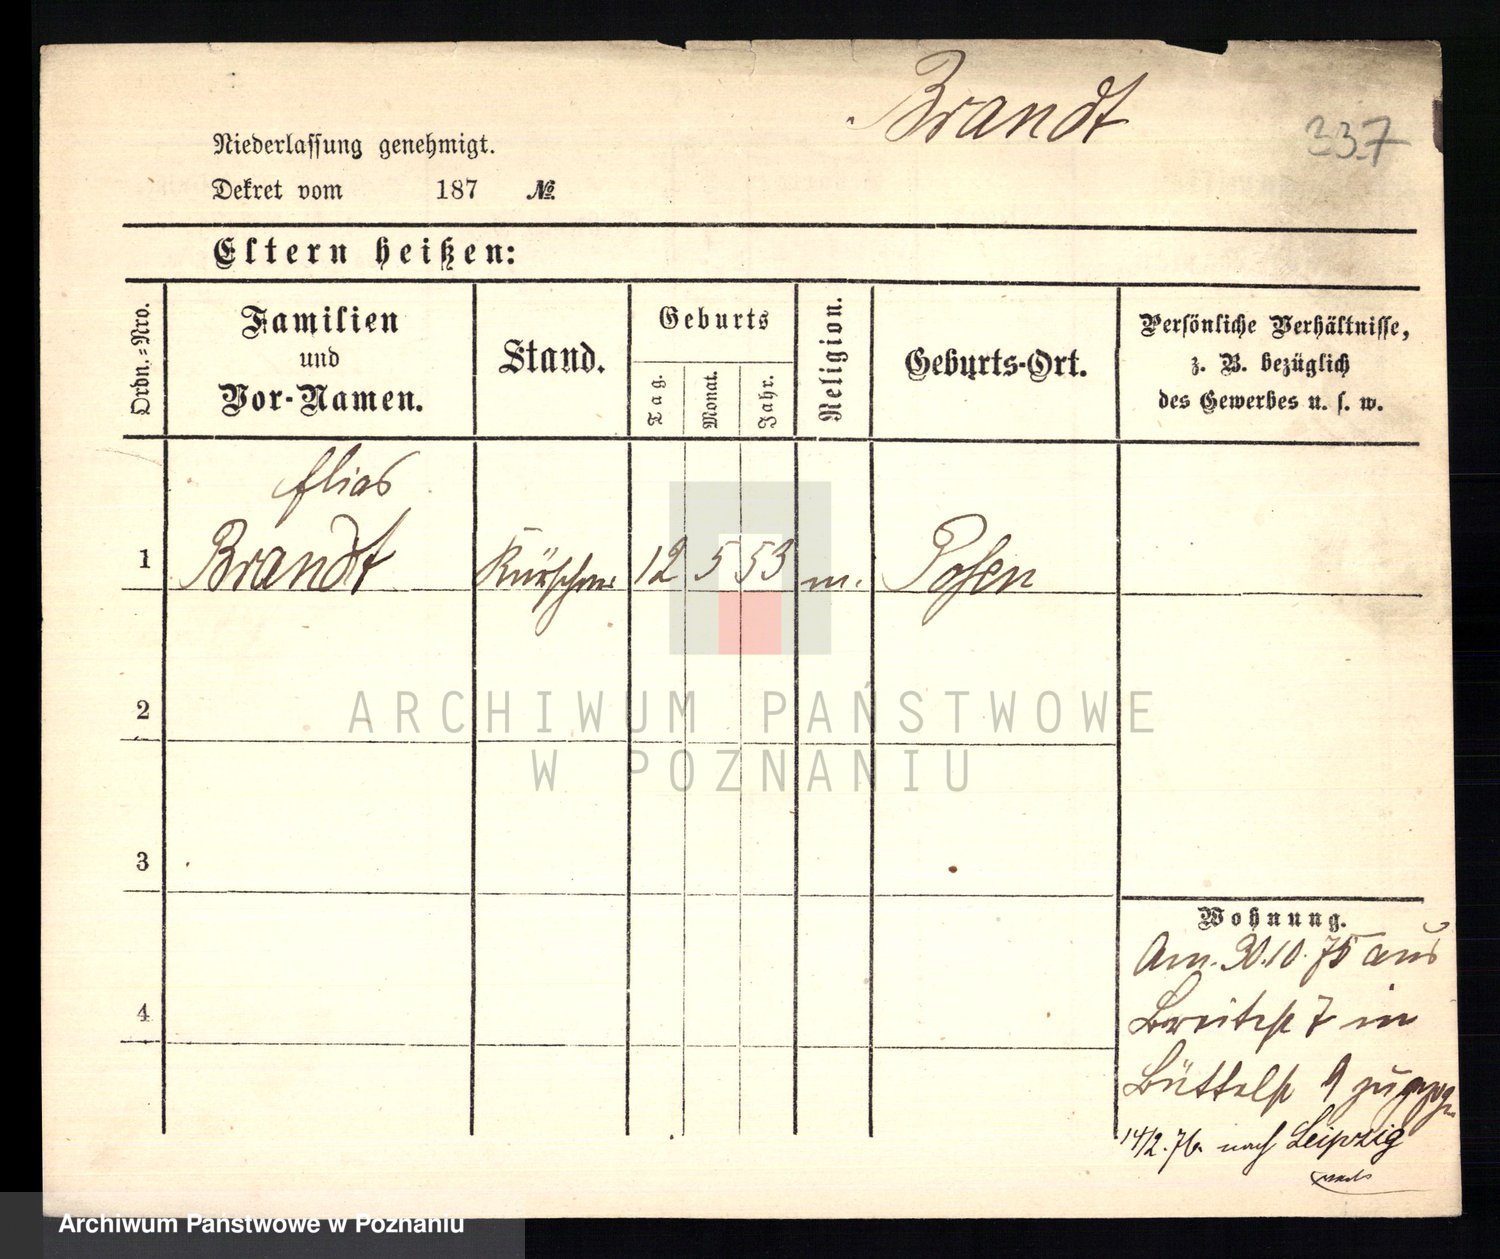 Brandt
337
Niederlassung genehmigt.
Dekret vom 187 №
Eltern heißen:
Ordn.=Nro.
Familien
und
Vor-Namen.
Stand.
Geburts
Tag.
Monat.
Jahr.
Religion.
Geburts-Ort.
Persönliche Verhältnisse,
z. B. bezüglich
des Gewerbes u. s. w.
Elias
1 Brandt Kürschner 12 5 53 m. Posen
2
ARCHIWUM PAŃSTWOWE
W POZNANIU
3
Wohnung.
Am. 30.10.75 aus
4
Breitestr 7 in
Büttelstr 9 zugezogen
14/2.76. nach Leipzig
Archiwum Państwowe w Poznaniu